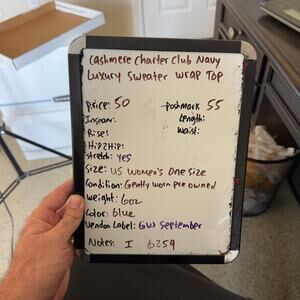 Cashmere Charter Club Navy
Luxury Sweater Wrap Top
Price: 50 Poshmark 55
Inseam: Length:
Rise: Waist:
Hip2Hip:
Stretch: Yes
Size: US Women's One Size
Condition: Gently worn pre owned
Weight: 6oz
Color: blue
Vendoo Label: GW September
Notes: I 6259